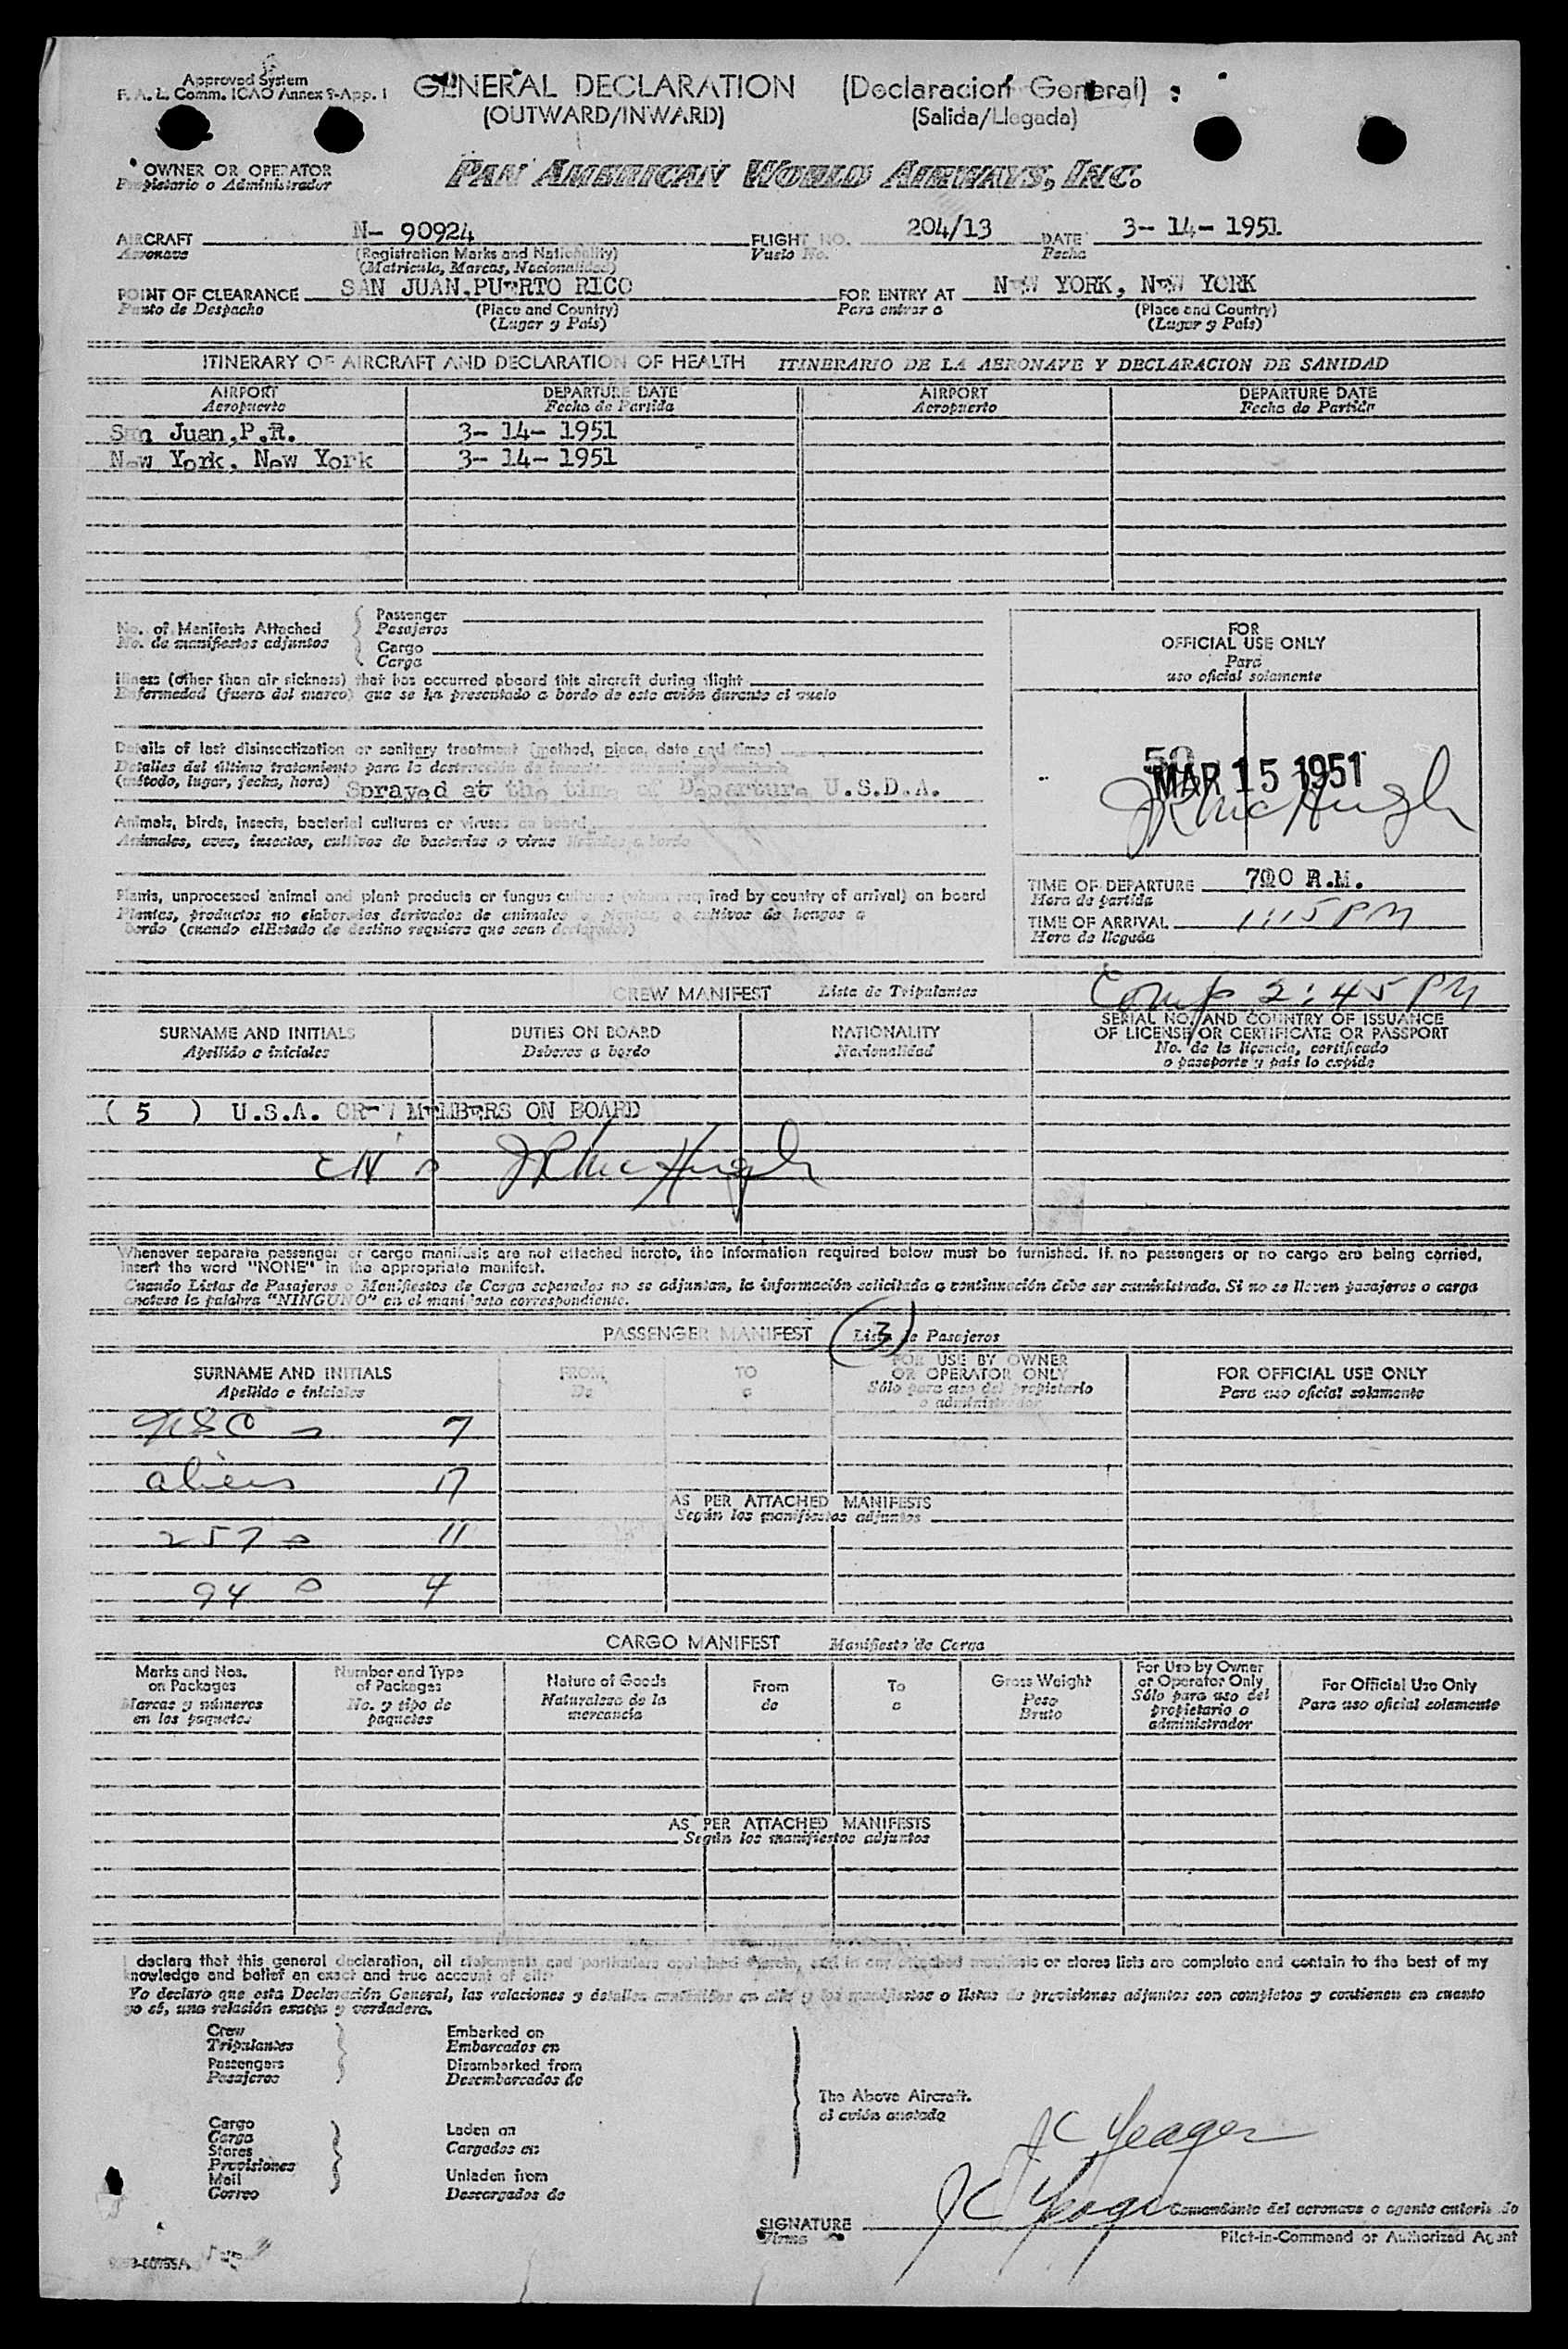 Approved System
F. A. L. Comm. ICAO Annex 9-App. 1
GENERAL DECLARATION (Declaracion General)
(OUTWARD/INWARD) (Salida/Llegada)
OWNER OR OPERATOR
Propietario o Administrador
PAN AMERICAN WORLD AIRWAYS, INC.
AIRCRAFT N- 90924 FLIGHT NO. 204/13 DATE 3- 14- 1951
Aeronave (Registration Marks and Nationality) Vuelo No. Fecha
(Matricula, Marcas, Nacionalidad)
POINT OF CLEARANCE SAN JUAN.PUERTO RICO FOR ENTRY AT NEW YORK, NEW YORK
Punto de Despacho (Place and Country) Para entrar a (Place and Country)
(Lugar y País) (Lugar y País)
ITINERARY OF AIRCRAFT AND DECLARATION OF HEALTH ITINERARIO DE LA AERONAVE Y DECLARACION DE SANIDAD
AIRPORT DEPARTURE DATE AIRPORT DEPARTURE DATE
Aeropuerto Fecha de Partida Aeropuerto Fecha de Partida
San Juan,P.R. 3- 14- 1951
New York, New York 3- 14- 1951
No. of Manifests Attached
No. de manifiestos adjuntos
Passenger
Pasajeros
Cargo
Carga
Illness (other than air sickness) that has occurred aboard this aircraft during flight
Enfermedad (fuera del mareo) que se ha presentado a bordo de este avión durante el vuelo
Details of last disinsectization or sanitary treatment (method, place, date and time)
Detalles del último tratamiento para la destrucción de insectos
(método, lugar, fecha, hora) Sprayed at the time of Departure U.S.D.A.
Animals, birds, insects, bacterial cultures or viruses on board
Animales, aves, insectos, cultivos de bacterias o virus llevados a bordo
Plants, unprocessed animal and plant products or fungus cultures (when required by country of arrival) on board
Plantas, productos no elaborados derivados de animales o plantas, o cultivos de hongos a
bordo (cuando elEstado de destino requiera que sean declarados)
FOR
OFFICIAL USE ONLY
Para
uso oficial solamente
MAR 15 1951
JR McHugh
TIME OF DEPARTURE 700 A.M.
Hora de partida
TIME OF ARRIVAL 1:15 PM
Hora de llegada
Comp 2:45 PM
CREW MANIFEST Lista de Tripulantes
SURNAME AND INITIALS DUTIES ON BOARD NATIONALITY SERIAL NO. AND COUNTRY OF ISSUANCE
OF LICENSE OR CERTIFICATE OR PASSPORT
Apellido e iniciales Deberes a bordo Nacionalidad No. de la licencia, certificado
o pasaporte y país lo expide
( 5 ) U.S.A. CREW MEMBERS ON BOARD
JR McHugh
Whenever separate passenger or cargo manifests are not attached hereto, the information required below must be furnished. If no passengers or no cargo are being carried,
insert the word "NONE" in the appropriate manifest.
Cuando Listas de Pasajeros o Manifiestos de Carga separados no se adjuntan, la información solicitada a continuación debe ser suministrada. Si no se llevan pasajeros o carga
anotese la palabra "NINGUNO" en el manifiesto correspondiente.
PASSENGER MANIFEST Lista de Pasajeros
3
SURNAME AND INITIALS FROM TO FOR USE BY OWNER
OR OPERATOR ONLY FOR OFFICIAL USE ONLY
Apellido e iniciales De a Sólo para uso del propietario
o administrador Para uso oficial solamente
USC 7
aliens 17
257 11
94 4
AS PER ATTACHED MANIFESTS
Según los manifiestos adjuntos
CARGO MANIFEST Manifiesto de Carga
Marks and Nos.
on Packages
Marcas y números
en los paquetes
Number and Type
of Packages
No. y tipo de
paquetes
Nature of Goods
Naturaleza de la
mercancía
From
de
To
a
Gross Weight
Peso
Bruto
For Use by Owner
or Operator Only
Sólo para uso del
propietario o
administrador
For Official Use Only
Para uso oficial solamente
AS PER ATTACHED MANIFESTS
Según los manifiestos adjuntos
I declare that this general declaration, all statements and particulars contained therein, and in any attached manifests or stores lists are complete and contain to the best of my
knowledge and belief an exact and true account of all:
Yo declaro que esta Declaración General, las relaciones y detalles contenidos en ella y los manifiestos o listas de provisiones adjuntos son completos y contienen en cuanto
yo sé, una relación exacta y verdadera.
Crew
Tripulantes
Passengers
Pasajeros
Embarked on
Embarcados en
Disembarked from
Desembarcados de
The Above Aircraft.
el avión anotado
Cargo
Carga
Stores
Provisiones
Mail
Correo
Laden on
Cargados en
Unladen from
Descargados de
JC Yeager
JC Yeager
Comandante del aeronave o agente autorizado
SIGNATURE
Firma
Pilot-in-Command or Authorized Agent